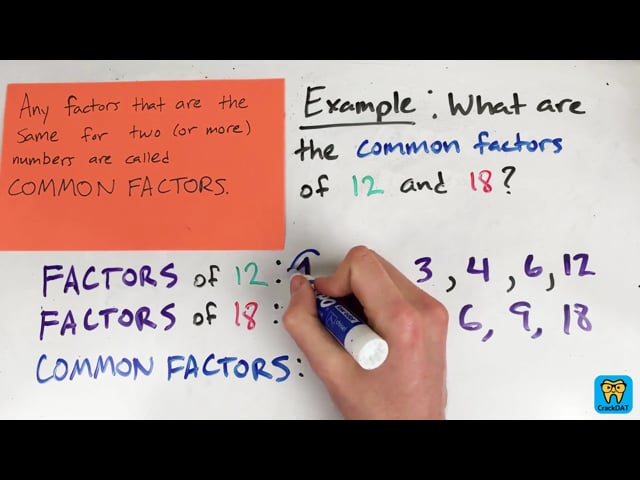 Any factors that are the
same for two (or more)
numbers are called
COMMON FACTORS.
Example: What are
the common factors
of 12 and 18?
FACTORS of 12: 1 3, 4, 6, 12
FACTORS of 18: 6, 9, 18
COMMON FACTORS:
CrackDAT